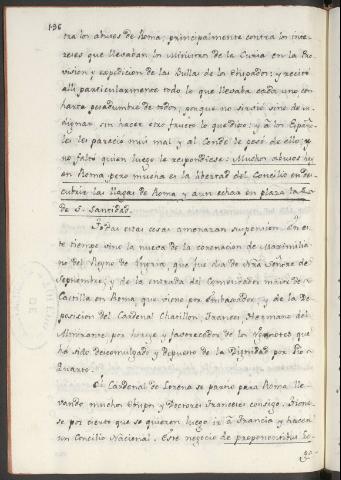 196
tra los abusos de Roma; principalmente contra los inte-
reses que llevaban los Ministros de la Curia en la Pro-
vision y expedicion de las Bullas de los Obispados: y recitó
alli particularmente todo lo que llevaba cada uno con
harta pesadumbre de todos, porque no sirvió sino de in-
dignar sin hacer otro fructo lo que dijo: y á los Españo-
les les pareció mui mal y al Conde le pesó de ello; y
no faltó quien luego le respondiese: Muchos abusos hay
en Roma pero mucha es la libertad del Concilio en des-
cubrir las llagas de Roma y aun echar en plaza las
de S. Santidad.
Todas estas cosas amenazan suspension. En es-
te tiempo vino la nueva de la coronacion de Maximilia-
no del Reyno de Ungria, que fue dia de Nra Señora de
Septiembre; y de la entrada del Comendador maior de
Castilla en Roma que vieno por Embaxador; y de la De-
posicion del Cardenal Chatillon Frances Hermano del
Almirante por herege y favorecedor de los Ugonotes que
ha sido descomulgado y depuesto de la Dignidad por Pio
Quarto.
El Cardenal de Lorena se partio para Roma lle-
vando muchos Obispos y Doctores Franceses consigo. Tiene-
se por cierto que se quieren luego ir á Francia y hacer
un Concilio Nacional. Este negocio de proponentibus Le-